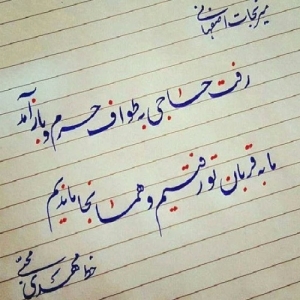 میر نجات اصفهانی
رفت حاجی به طواف حرم و باز آمد
ما به قربان تو رفتیم و همانجا ماندیم
خط مهدی